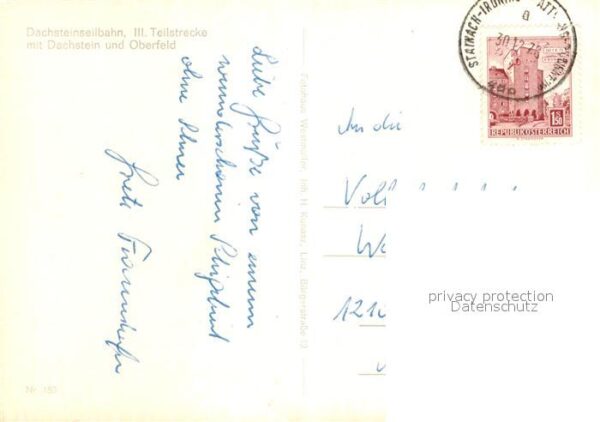 Dachsteinseilbahn, III. Teilstrecke
mit Dachstein und Oberfeld
Liebe Grüße von einem
wunderschönen Skigebiet
ohne Schnee
Fotohaus Westmüller, Inh. H. Kunasz, Linz, Bürgerstraße 13
Nr. 150
STAINACH-IRDNING
30.12.72
REPUBLIK ÖSTERREICH
An die
Vol
121
privacy protection
Datenschutz